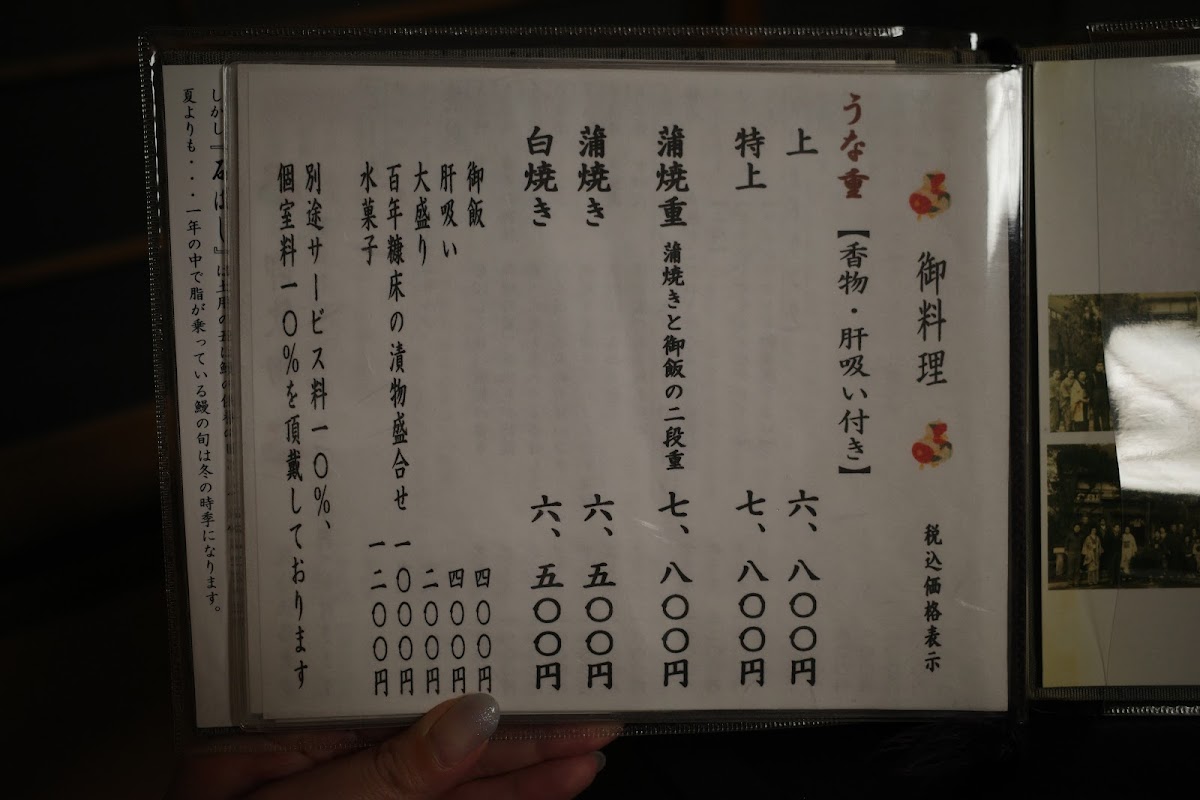 御料理 税込価格表示
うな重【香物・肝吸い付き】
上 六、八〇〇円
特上 七、八〇〇円
蒲焼重 蒲焼きと御飯の二段重 七、八〇〇円
蒲焼き 六、五〇〇円
白焼き 六、五〇〇円
御飯 四〇〇円
肝吸い 四〇〇円
大盛り 二〇〇円
百年糠床の漬物盛合せ 一〇〇〇円
水菓子 一二〇〇円
別途サービス料一〇%、
個室料一〇%を頂戴しております
しかし『石ばし』は土用の
夏よりも・・・一年の中で脂が乗っている鰻の旬は冬の時季になります。